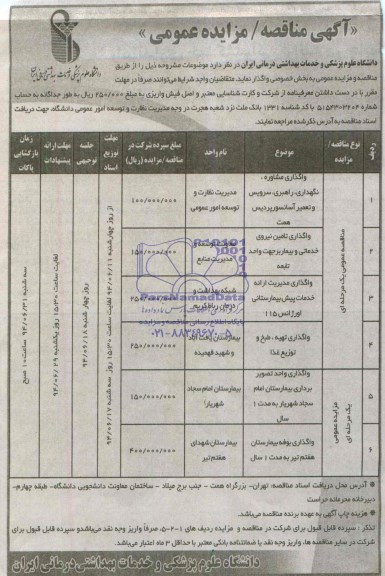 « آگهی مناقصه/ مزایده عمومی »
دانشگاه علوم پزشکی و خدمات بهداشتی درمانی ایران در نظر دارد موضوعات مشروحه ذیل را از طریق
مناقصه و مزایده عمومی به بخش خصوصی واگذار نماید. متقاضیان واجد شرایط می‌توانند صرفاً در مهلت
مقرر با در دست داشتن معرفینامه از شرکت و کارت شناسایی معتبر و اصل فیش واریزی به مبلغ ۲۵۰/۰۰۰ ریال به طور جداگانه به حساب
شماره با کد شناسه ۱۳۳۱ بانک ملت نزد شعبه هجرت در وجه مدیریت نظارت و توسعه امور عمومی دانشگاه، جهت دریافت
اسناد به آدرس تذکر شده مراجعه نمایند.
ردیف
نوع مناقصه/ مزایده
موضوع
نام واحد
مبلغ سپرده شرکت در مناقصه/مزایده (ریال)
مهلت توزیع اسناد
جلسه توجیهی
مهلت ارائه پیشنهادات
زمان بازگشایی پاکات
۱
واگذاری مشاوره، نگهداری، راهبری، سرویس و تعمیر آسانسور پردیس همت
مدیریت نظارت و توسعه امور عمومی
۱۰۰/۰۰۰/۰۰۰
۲
واگذاری تامین نیروی خدماتی و بیماربر جهت واحد تابعه
مدیریت منابع
۱۵۰/۰۰۰/۰۰۰
۳
واگذاری مدیریت ارائه خدمات پیش بیمارستانی اورژانس ۱۱۵
شبکه بهداشت و درمان رباط کریم
۴
واگذاری تهیه، طبخ و توزیع غذا
و شهید فهمیده
۲۵۰/۰۰۰/۰۰۰
۵
واگذاری واحد تصویر برداری بیمارستان امام سجاد شهریار به مدت ۱ سال
بیمارستان امام سجاد شهریار
۱۵۰/۰۰۰/۰۰۰
۶
واگذاری بوفه بیمارستان هفتم تیر به مدت ۱ سال
بیمارستان شهدای هفتم تیر
۴۰۰/۰۰۰/۰۰۰
مناقصه عمومی یک مرحله ای
مزایده عمومی یک مرحله ای
روز چهارشنبه ۹۴/۰۶/۱۸
لغایت ساعت ۱۵:۳۰ روز یکشنبه ۹۴/۰۶/۲۹
سه شنبه ۹۴/۰۶/۳۱ ساعت ۱۰ صبح
ParsNamadData
پایگاه اطلاع رسانی مناقصه و مزایده
۰۲۱-۸۸۳۴۹۶۷۰-۵
آدرس محل دریافت اسناد مناقصه: تهران- بزرگراه همت - جنب برج میلاد - ساختمان معاونت دانشجویی دانشگاه- طبقه چهارم-
دبیرخانه محرمانه حراست
هزینه چاپ آگهی به عهده برنده مناقصه می‌باشد.
تذکر : سپرده قابل قبول برای شرکت در مناقصه و مزایده ردیف های ۱-۲-۵ صرفا واریز وجه نقد می‌باشد و سپرده قابل قبول برای
شرکت در سایر مناقصه ها، واریز وجه نقد یا ضمانتنامه بانکی معتبر با حداقل ۳ ماه اعتبار می‌باشد.
دانشگاه علوم پزشکی و خدمات بهداشتی درمانی ایران